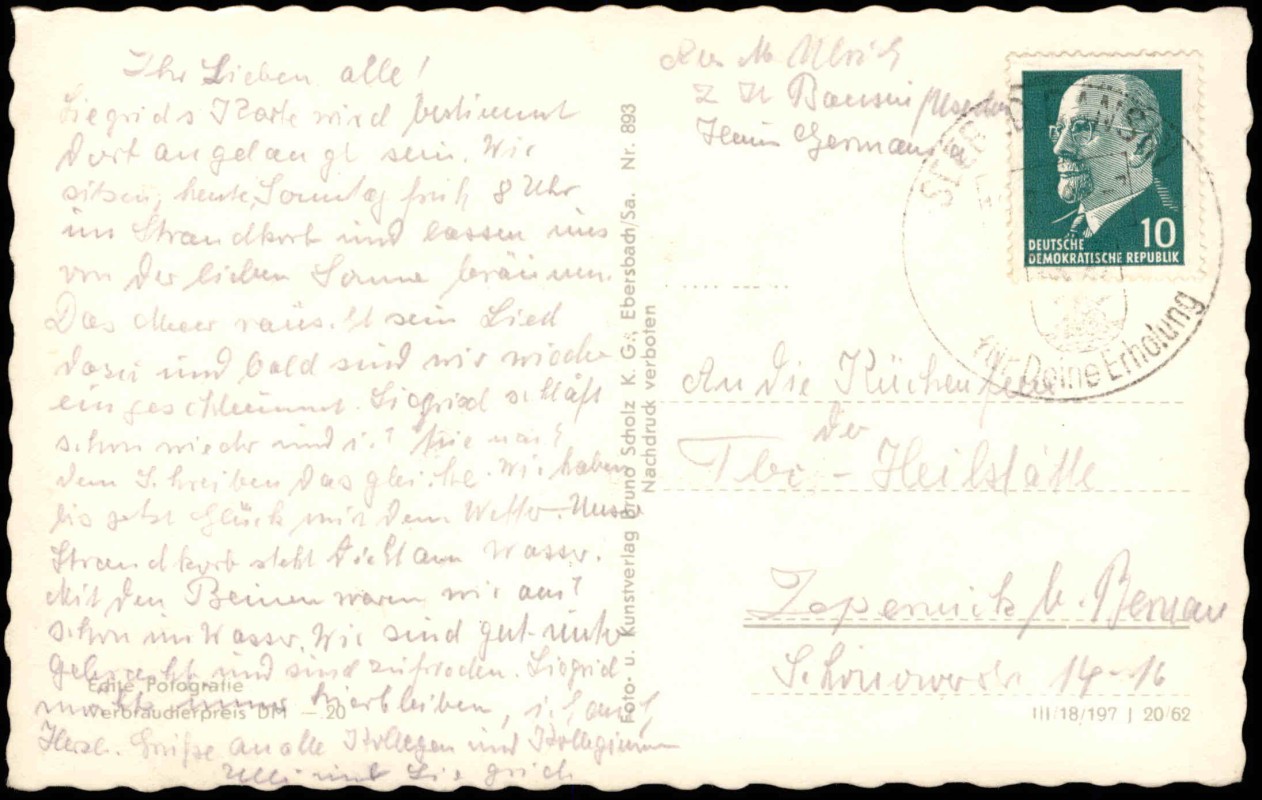 Ihr Lieben alle!
Siegrids Karte wird bestimmt
dort angelangt sein. Wir
sitzen, heute, Sonntag früh 8 Uhr
im Strandkorb und lassen uns
von der lieben Sonne bräunen.
Das Meer rauscht sein Lied
dazu und bald sind wir wieder
eingeschlummert. Siegrid schläft
schon wieder und ich tue nach
dem Schreiben das gleiche. Wir haben
bis jetzt Glück mit dem Wetter. Unser
Strandkorb steht dicht am Wasser.
Mit den Beinen waren wir auch
schon im Wasser. Wir sind gut unter
gebracht und sind zufrieden. Siegrid
möchte immer hierbleiben, ich auch,
Herzl. Grüße an alle Kollegen und Kolleginnen
Ulli und Siegrid
Echte Fotografie
Verbraucherpreis DM -.20
Foto- u. Kunstverlag Bruno Scholz K. G., Ebersbach/Sa. Nr. 893
Nachdruck verboten
Ulrich
z Zt Bansin /Usedom
Haus Germania
DEUTSCHE
DEMOKRATISCHE REPUBLIK
10
SEEBAD BANSIN
für Deine Erholung
An die Küchenfeen
der
Tbc-Heilstätte
Zepernick b. Bernau
Schönowerstr. 14-16
III/18/197 J 20/62